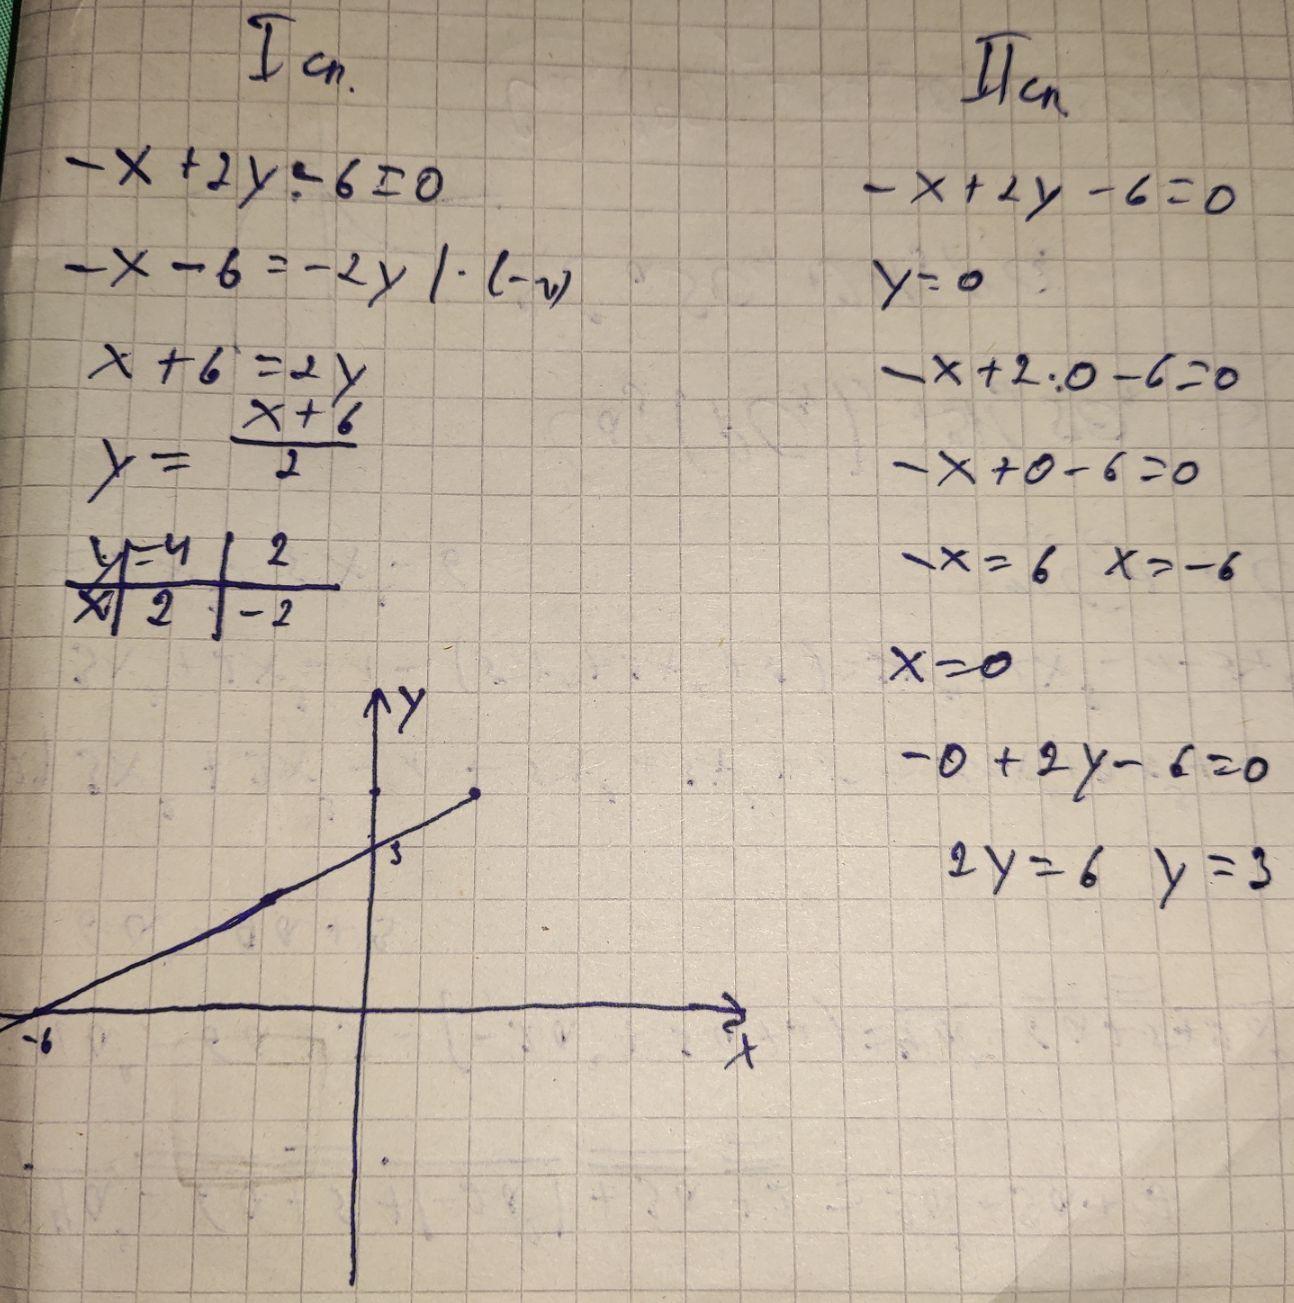 I сп.
-x + 2y - 6 = 0
-x - 6 = -2y | · (-2)
x + 6 = 2y
y = x + 6 / 2
y = 4 | 2
x | 2 | -2
y
3
-6
x
II сп
-x + 2y - 6 = 0
y = 0
-x + 2·0 - 6 = 0
-x + 0 - 6 = 0
-x = 6 x = -6
x = 0
-0 + 2y - 6 = 0
2y = 6 y = 3